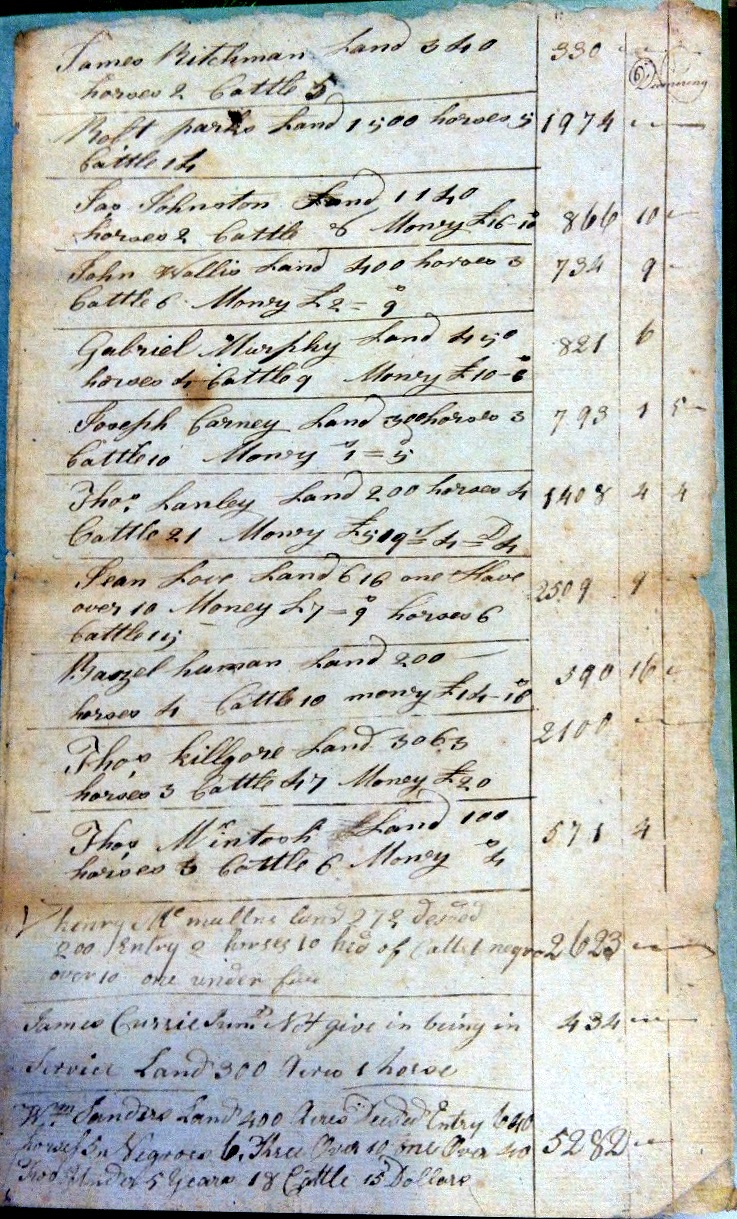 James Ritchman Land 340 330
horses 2 Cattle 5
Robt parks Land 1500 horses 5 1974
Cattle 14
Jas Johnston Land 1140
horses 2 Cattle 8 Money £16-10 866 10
John Wallis Land 400 horses 3 734 9
Cattle 6 Money £2=9
Gabriel Murphy Land 450 821 6
horses 4 Cattle 9 Money £10-6
Joseph Carney Land 300 horses 3 793 1 5
Cattle 10 Money 1=5
Thos. Lanley Land 200 horses 4 1408 4 4
Cattle 21 Money £519=4=4
Jean Love Land 616 one Slave
over 10 Money £7=9 horses 6 2509 9
Cattle 15
Bazel human Land 200 590 16
horses 4 Cattle 10 money £14-16
Thos killgore Land 3063 2100
horses 3 Cattle 47 Money £20
Thos McIntosh Land 100 571 4
horses 3 Cattle 6 Money 4
henry Mc mullns land 272 deeded
200 Entry 2 horses 10 hed of Cattel 1 negro 2623
over 10 one under five
James Currie Junr. Not give in being in 434
Service Land 300 Acres 1 horse
Wm Sanders Land 400 Acres Deeded Entry 640
horses Negroes 6, Three Over 10 one Over 40 5282
Two Under 5 Years 18 Cattle 15 Dollars